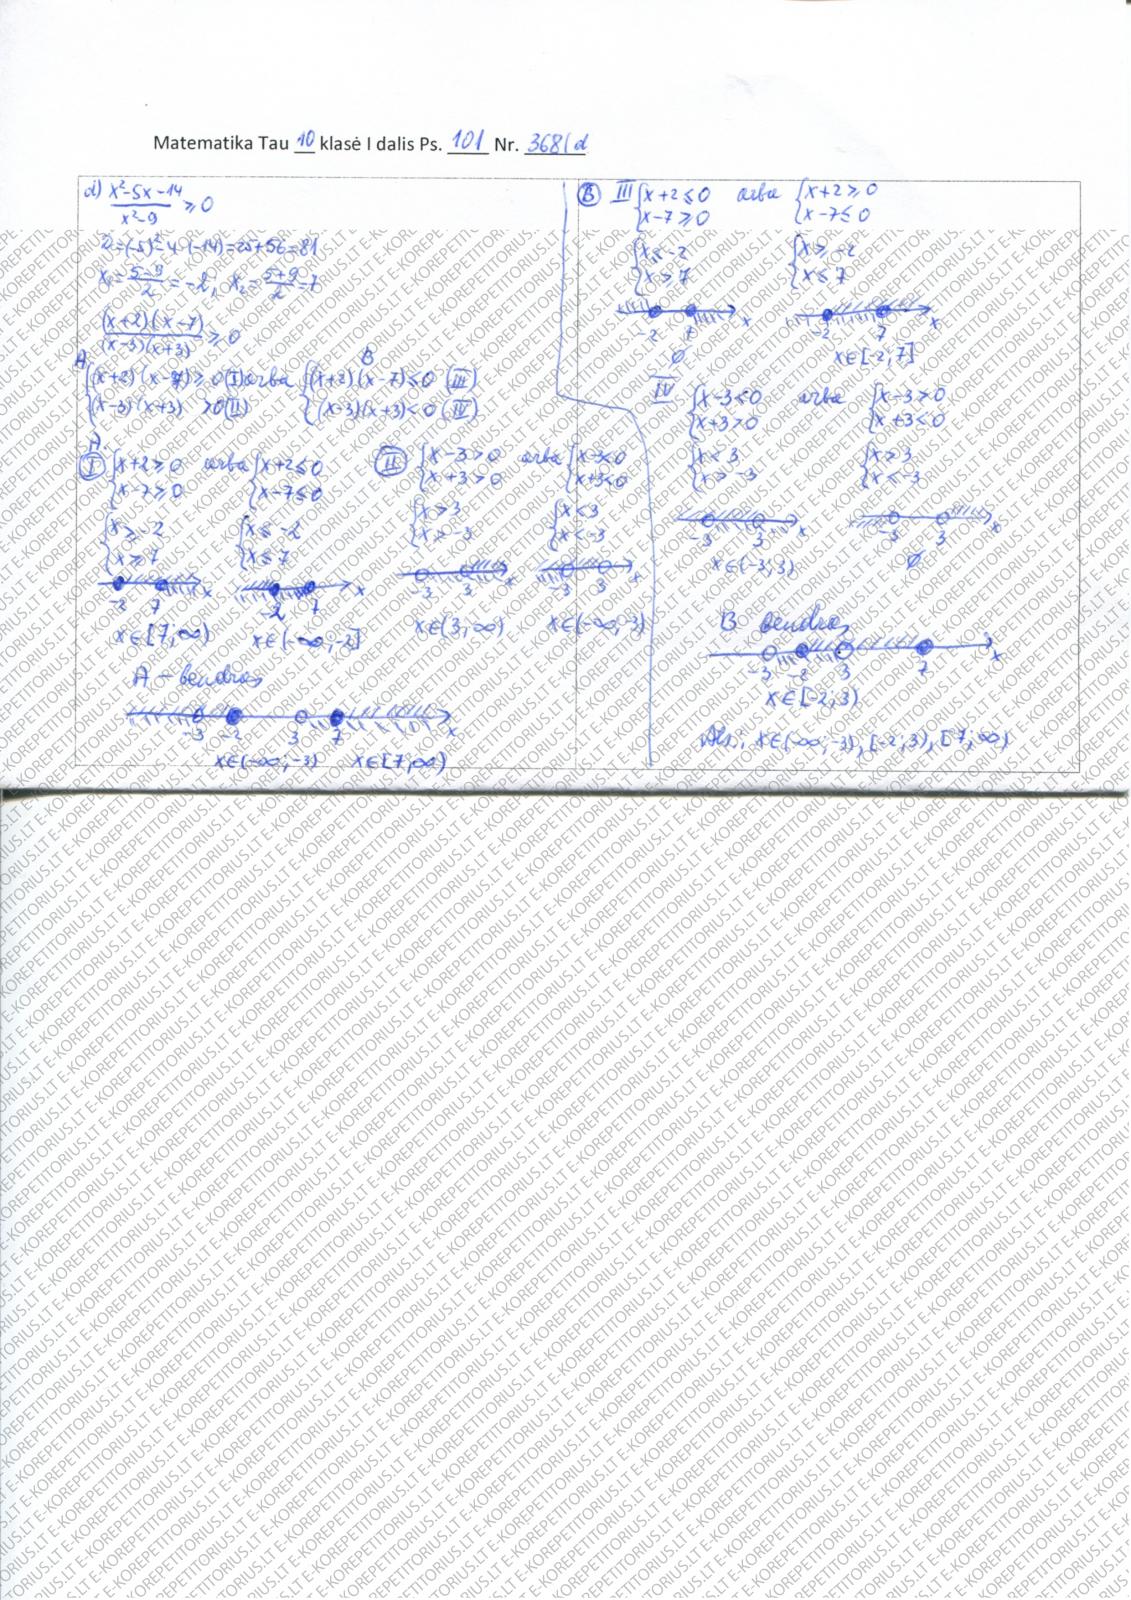 Matematika Tau 10 klasė I dalis Ps. 101 Nr. 368(d
d) x²-5x-14 / x²-9 ≥ 0
D=(-5)²-4·(-14)=25+56=81
x₁=5-9/2=-2, x₂=5+9/2=7
(x+2)(x-7) / (x-3)(x+3) ≥ 0
A B
{(x+2)(x-7)≥0 (I) arba {(x+2)(x-7)≤0 (III)
{(x-3)(x+3)>0 (II) {(x-3)(x+3)<0 (IV)
A.
I {x+2≥0 arba {x+2≤0
{x-7≥0 {x-7≤0
{x≥-2 {x≤-2
{x≥7 {x≤7
-2 7 x -2 7 x
x∈[7;∞) x∈(-∞;-2]
II {x-3>0 arba {x-3<0
{x+3>0 {x+3<0
{x>3 {x<3
{x>-3 {x<-3
-3 3 x -3 3 x
x∈(3;∞) x∈(-∞;-3)
A-bendras
-3 -2 3 7 x
x∈(-∞;-3) x∈[7;∞)
B III {x+2≤0 arba {x+2≥0
{x-7≥0 {x-7≤0
{x≤-2 {x≥-2
{x≥7 {x≤7
-2 7 x -2 7 x
∅ x∈[-2;7]
IV {x-3<0 arba {x-3>0
{x+3>0 {x+3<0
{x<3 {x>3
{x>-3 {x<-3
-3 3 x -3 3 x
x∈(-3;3) ∅
B bendras
-3 -2 3 7 x
x∈[-2;3)
Ats.: x∈(-∞;-3), [-2;3), [7;∞)
E-KOREPETITORIUS.LT